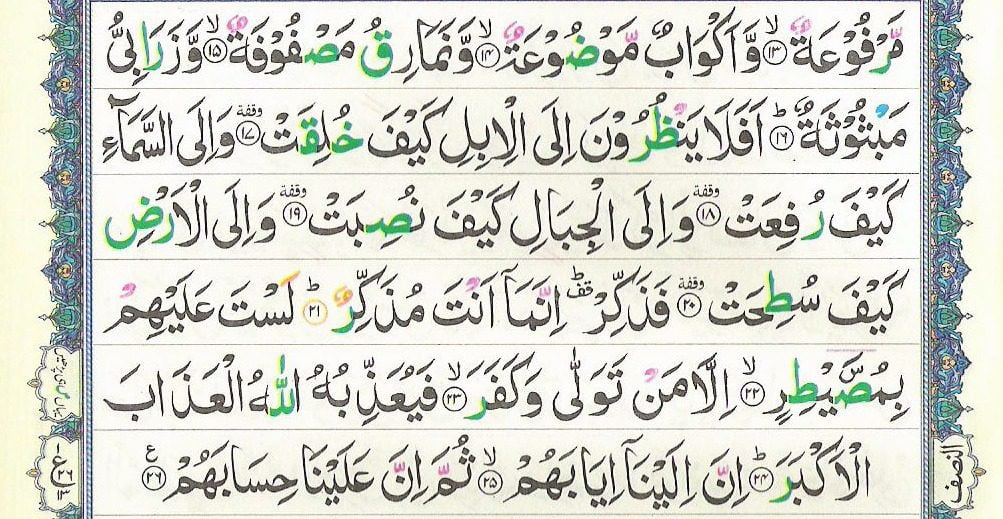 مَّرْفُوْعَةٌ ۙ‏﴿۱۳﴾ وَّاَكْوَابٌ مَّوْضُوْعَةٌ ۙ‏﴿۱۴﴾ وَّنَمَارِقُ مَصْفُوْفَةٌ ۙ‏﴿۱۵﴾ وَّزَرَابِىُّ
مَبْثُوْثَةٌ ؕ‏﴿۱۶﴾ اَفَلَا يَنْظُرُوْنَ اِلَى الْاِبِلِ كَيْفَ خُلِقَتْ وقفة ﴿۱۷﴾ وَاِلَى السَّمَآءِ
كَيْفَ رُفِعَتْ وقفة ﴿۱۸﴾ وَاِلَى الْجِبَالِ كَيْفَ نُصِبَتْ وقفة ﴿۱۹﴾ وَاِلَى الْاَرْضِ
كَيْفَ سُطِحَتْ وقفة ﴿۲۰﴾ فَذَكِّرْ قف ؕ اِنَّمَاۤ اَنْتَ مُذَكِّرٌ ؕ‏﴿۲۱﴾ لَسْتَ عَلَيْهِمْ
بِمُصَۜيْطِرٍ ۙ‏﴿۲۲﴾ اِلَّا مَنْ تَوَلّٰى وَكَفَرَ ۙ‏﴿۲۳﴾ فَيُعَذِّبُهُ اللّٰهُ الْعَذَابَ
الْاَكْبَرَ ؕ‏﴿۲۴﴾ اِنَّ اِلَيْنَاۤ اِيَابَهُمْ ۙ‏﴿۲۵﴾ ثُمَّ اِنَّ عَلَيْنَا حِسَابَهُمْ ع ﴿۲۶﴾
النصف